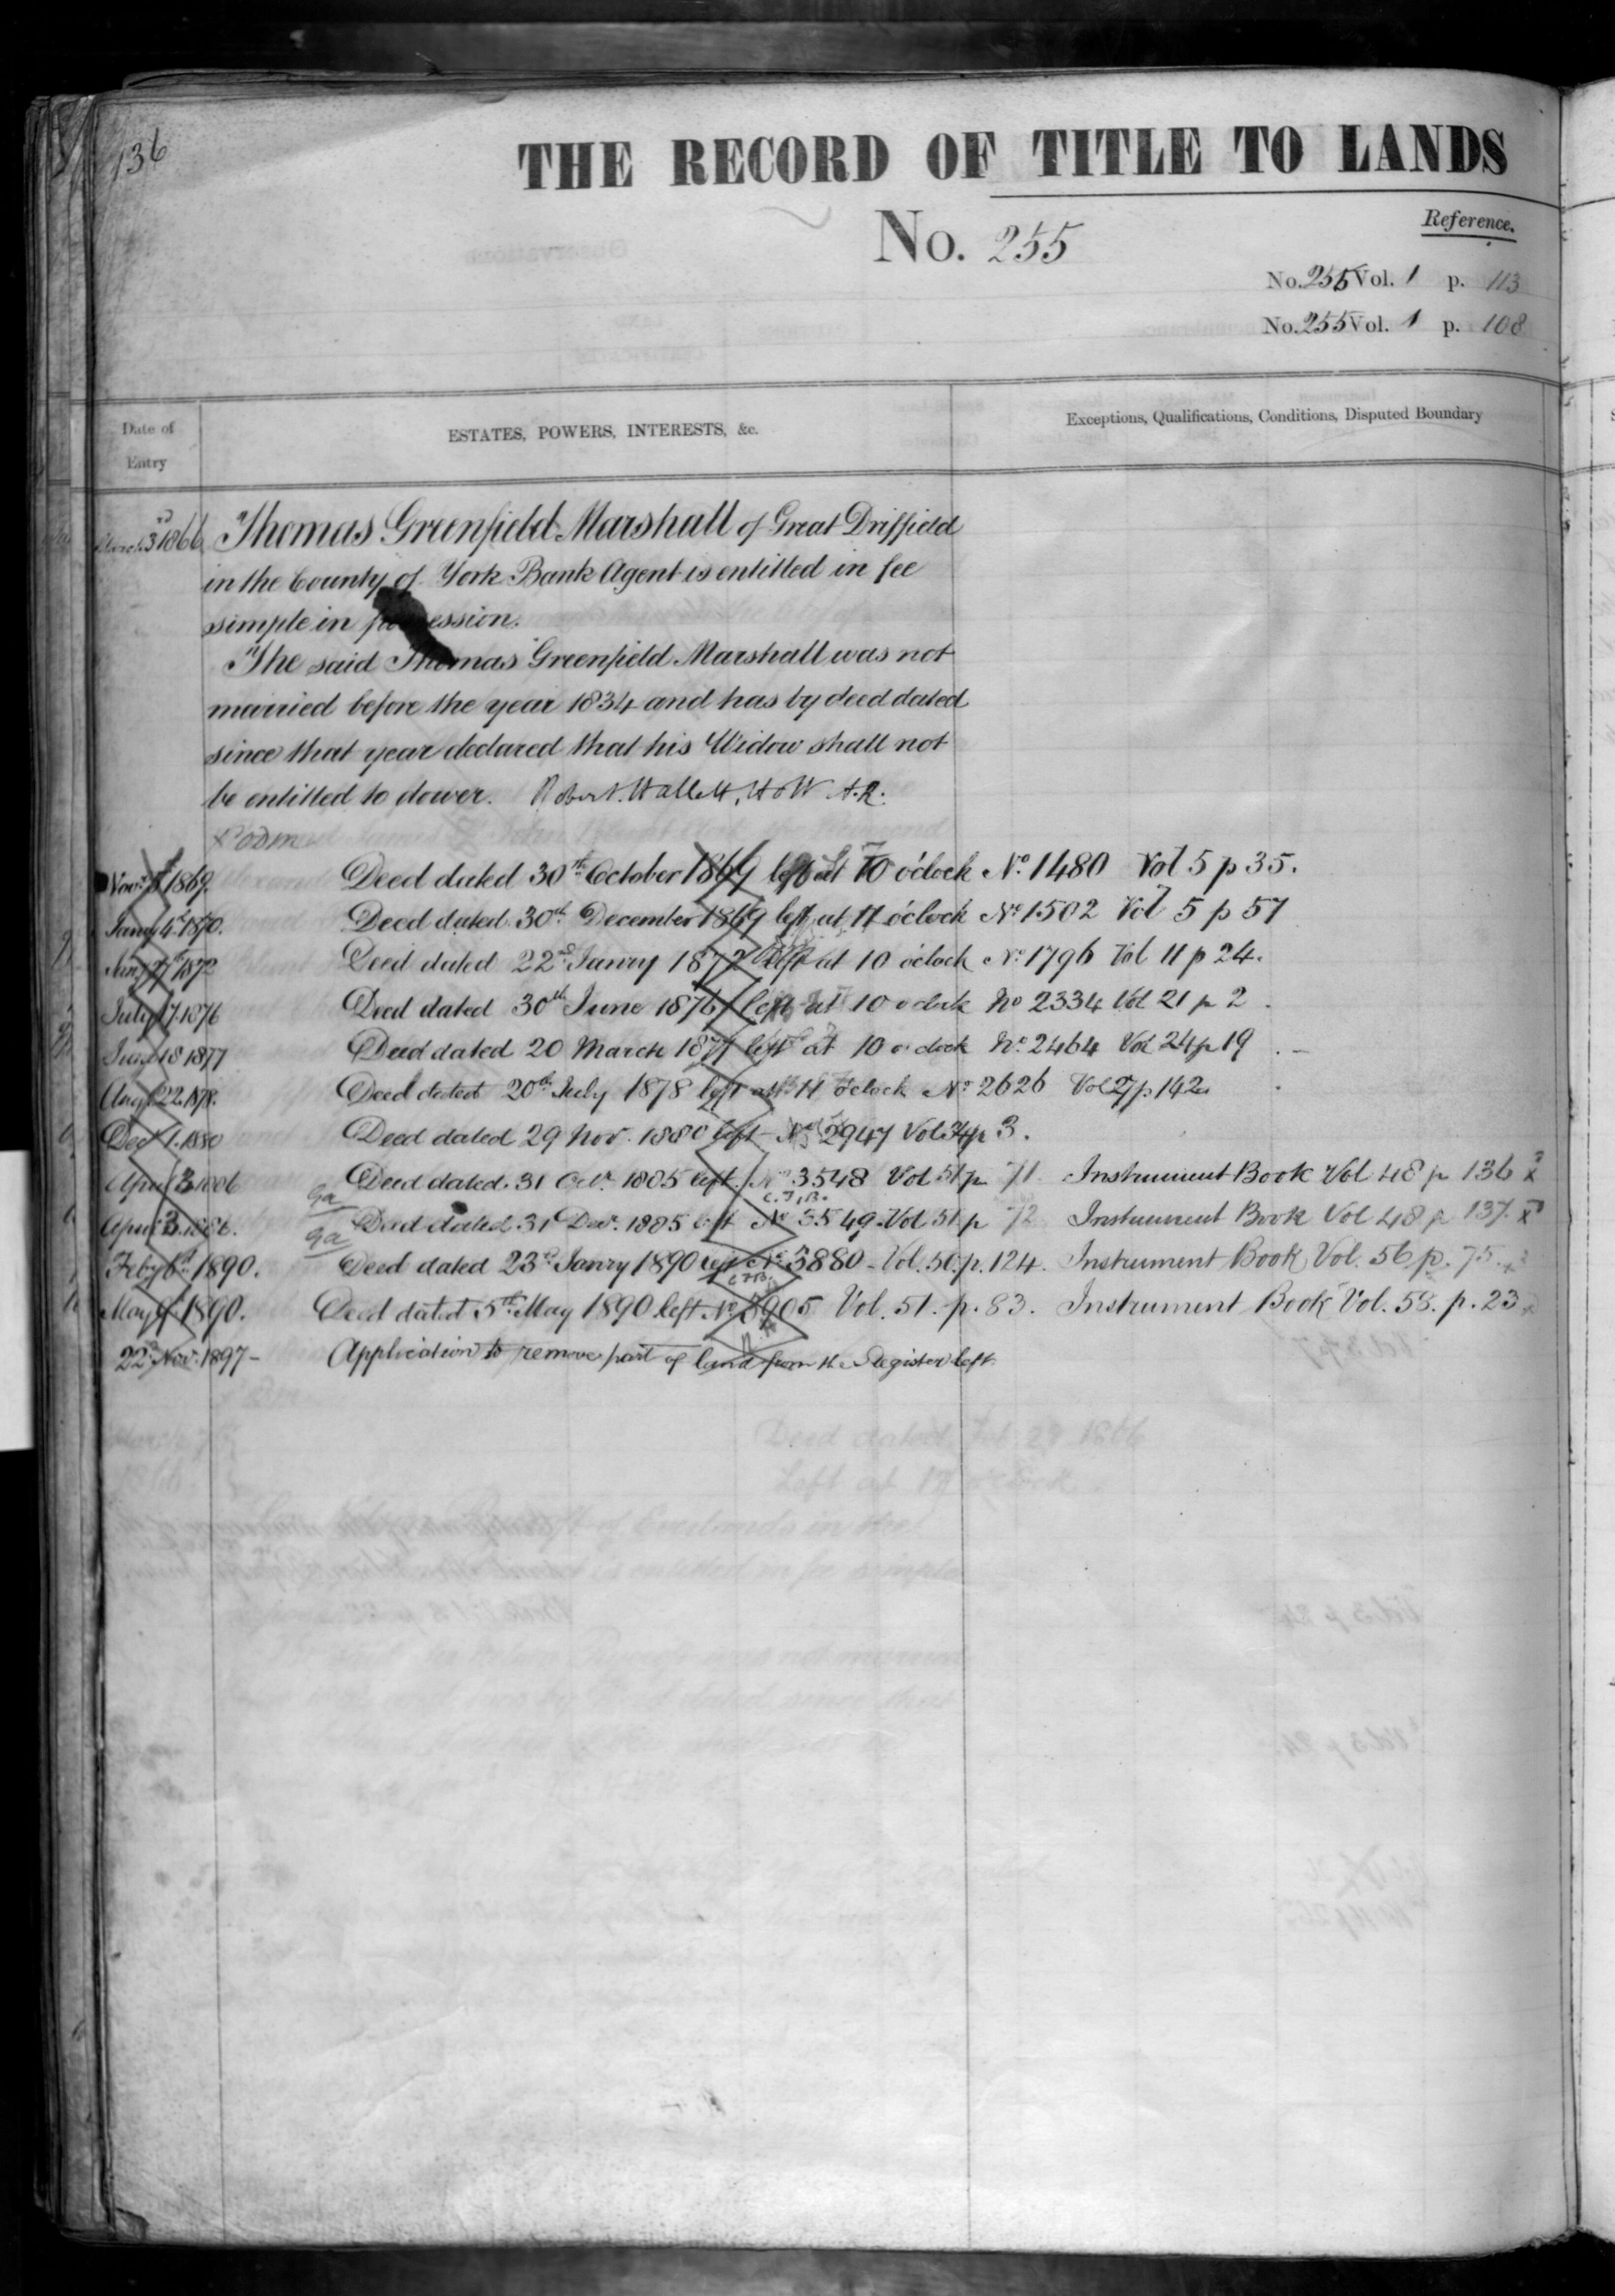 136
THE RECORD OF TITLE TO LANDS
No. 255
Reference.
No. 255 Vol. 1 p. 113
No. 255 Vol. 1 p. 108
Date of Entry
ESTATES, POWERS, INTERESTS, &c.
Exceptions, Qualifications, Conditions, Disputed Boundary
March 3rd 1866 Thomas Greenfield Marshall of Great Driffield
in the County of York Bank Agent is entitled in fee
simple in possession.
The said Thomas Greenfield Marshall was not
married before the year 1834 and has by deed dated
since that year declared that his Widow shall not
be entitled to dower. Robert Hallett, How A.R.
Novr 1869. Deed dated 30th October 1869 left at 10 o'clock No. 1480 Vol 5 p 35.
Jany 4th 1870. Deed dated 30th December 1869 left at 11 o'clock No. 1502 Vol 5 p 57
1872 Deed dated 22nd Janry 1872 left at 10 o'clock No. 1796 Vol 11 p 24.
July 17. 1876 Deed dated 30th June 1876 left at 10 o'clock No 2334 Vol 21 p 2.
18 1877 Deed dated 20 March 1877 left at 10 o'clock No. 2464 Vol 24 p 19.
Augt 22. 1878. Deed dated 20th July 1878 left at 11 o'clock No 2626 Vol 27 p 142
Decr 1. 1880 Deed dated 29 Nov. 1880 left No 2947 Vol 34 p 3.
April 3. 1886 Deed dated. 31 Octr. 1885 left. No 3548 Vol 51 p 71 Instrument Book Vol 48 p 136 x
ga
C.F.B.
April 3. 1886. Deed dated. 31 Decr. 1885 left No 3549 Vol 51. p 72 Instrument Book Vol 48 p 137. x
ga
Feby 6th 1890. Deed dated 23rd Janry 1890 left No 3880 - Vol. 50. p. 124. Instrument Book Vol. 56 p. 75. x
May 1890. Deed dated 5th May 1890 left No. 3905 Vol. 51. p. 83. Instrument Book Vol. 58. p. 23 x
22nd Novr 1897 - Application to remove part of land from the Register left.